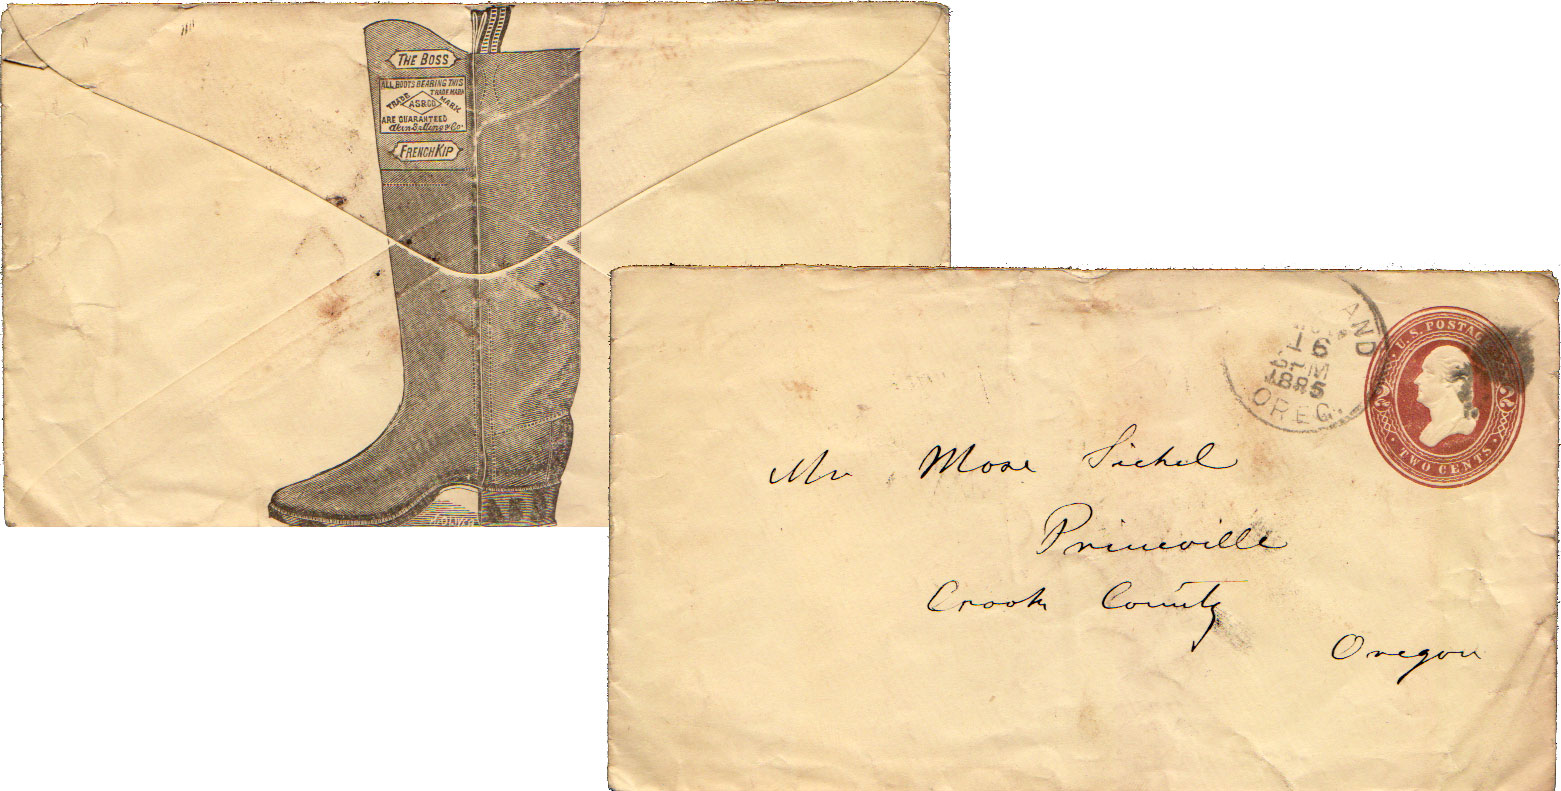 THE BOSS
ALL BOOTS BEARING THIS
TRADE MARK
TRADE A.S&CO MARK
ARE GUARANTEED
Akin Selling & Co
FRENCH KIP
AND
16
PM
1885
OREG.
U.S. POSTAGE
2 2
TWO CENTS
Mr Mose Sichel
Prineville
Crook County
Oregon